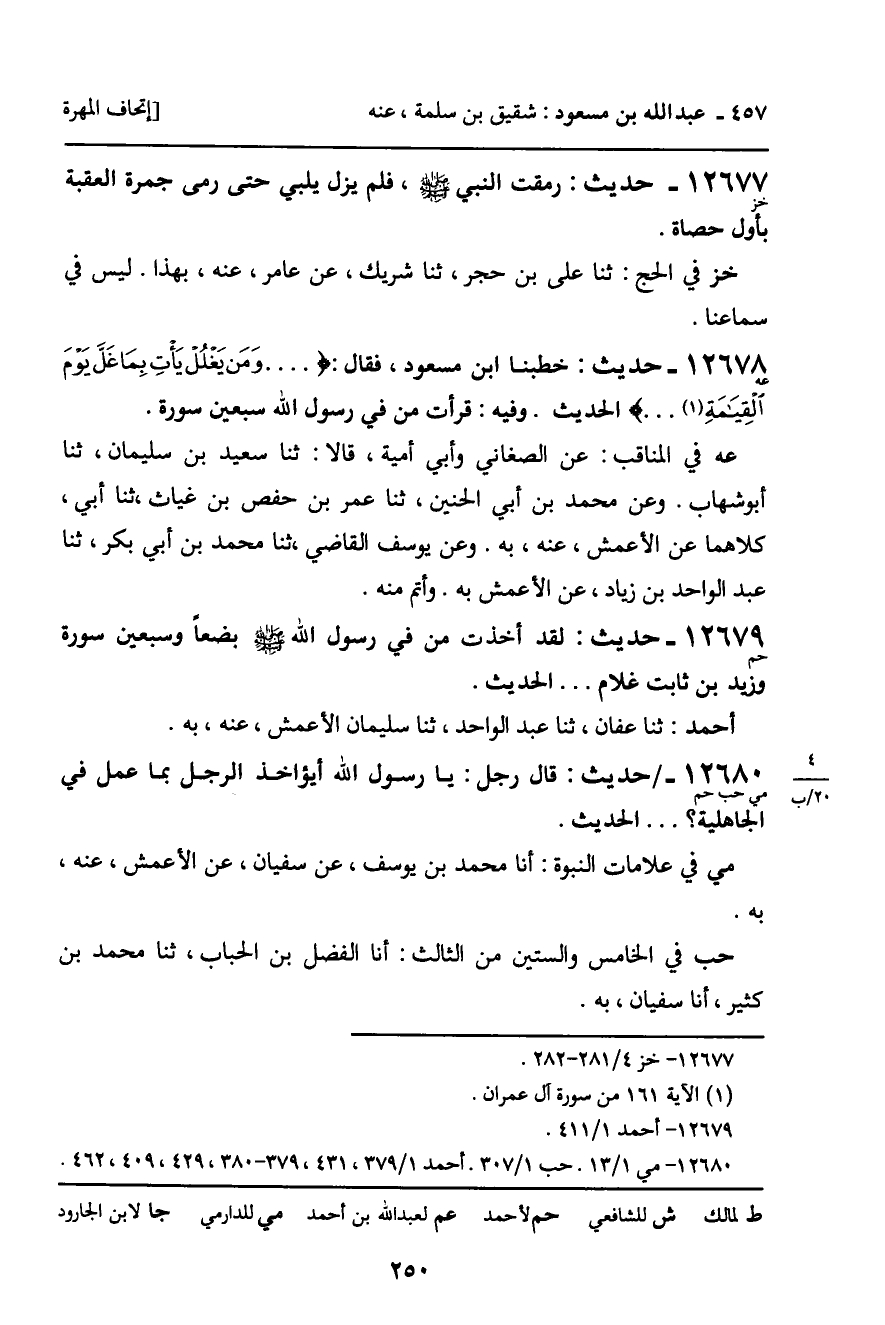 ٤٥٧ ـ عبدالله بن مسعود : شقيق بن سلمة ، عنه [إتحاف المهرة
١٢٦٧٧ ـ حديث : رمقت النبي ﷺ ، فلم يزل يلبي حتى رمى جمرة العقبة
خز
بأول حصاة .
خز في الحج : ثنا على بن حجر ، ثنا شريك ، عن عامر ، عنه ، بهذا . ليس في
سماعنا .
١٢٦٧٨ ـ حديث : خطبنا ابن مسعود ، فقال : ﴿ .... وَمَن يَغْلُلْ يَأْتِ بِمَا غَلَّ يَوْمَ
عه
ٱلْقِيَٰمَةِ(١) ...﴾ الحديث . وفيه : قرأت من في رسول الله سبعين سورة .
عه في المناقب : عن الصغاني وأبي أمية ، قالا : ثنا سعيد بن سليمان ، ثنا
أبوشهاب . وعن محمد بن أبي الحنين ، ثنا عمر بن حفص بن غياث ،ثنا أبي ،
كلاهما عن الأعمش ، عنه ، به . وعن يوسف القاضي ،ثنا محمد بن أبي بكر ، ثنا
عبد الواحد بن زياد ، عن الأعمش به . وأتم منه .
١٢٦٧٩ ـ حديث : لقد أخذت من في رسول الله ﷺ بضعاً وسبعين سورة
حم
وزيد بن ثابت غلام ... الحديث .
أحمد : ثنا عفان ، ثنا عبد الواحد ، ثنا سليمان الأعمش ، عنه ، به .
١٢٦٨٠ ـ/حديث : قال رجل : يا رسول الله أيؤاخذ الرجل بما عمل في
٤
٢٠/ب
مي حب حم
الجاهلية؟ ... الحديث .
مي في علامات النبوة : أنا محمد بن يوسف ، عن سفيان ، عن الأعمش ، عنه ،
به .
حب في الخامس والستين من الثالث : أنا الفضل بن الحباب ، ثنا محمد بن
كثير ، أنا سفيان ، به .
١٢٦٧٧– خز ٤/ ٢٨١–٢٨٢ .
(١) الآية ١٦١ من سورة آل عمران .
١٢٦٧٩– أحمد ٤١١/١ .
١٢٦٨٠– مي ١٣/١ . حب ٣٠٧/١ . أحمد ٣٧٩/١ ، ٤٣١ ، ٣٧٩–٣٨٠ ، ٤٢٩ ، ٤٠٩ ، ٤٦٢ .
ط لمالك ش للشافعي حم لأحمد عم لعبدالله بن أحمد مي للدارمي جا لابن الجارود
٢٥٠